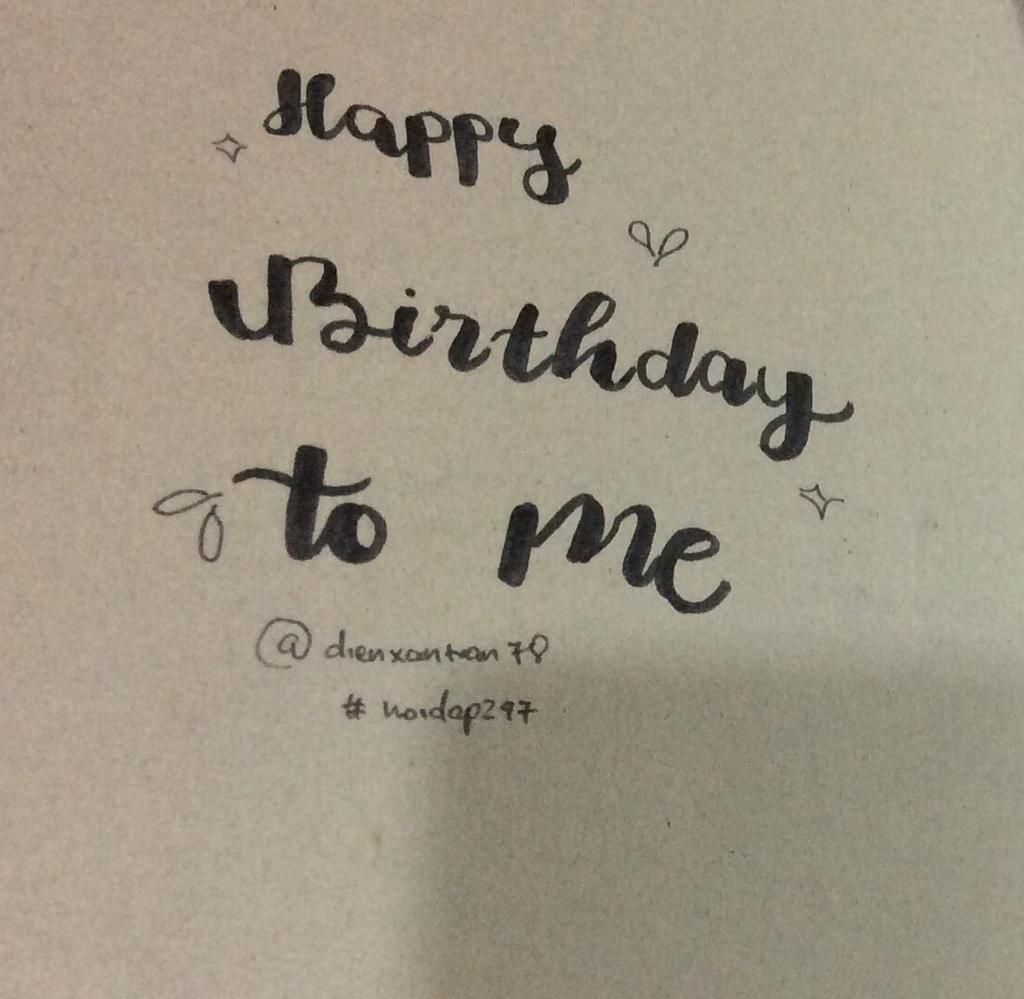 Happy
Birthday
to me
@dienxantran78
# noidap297